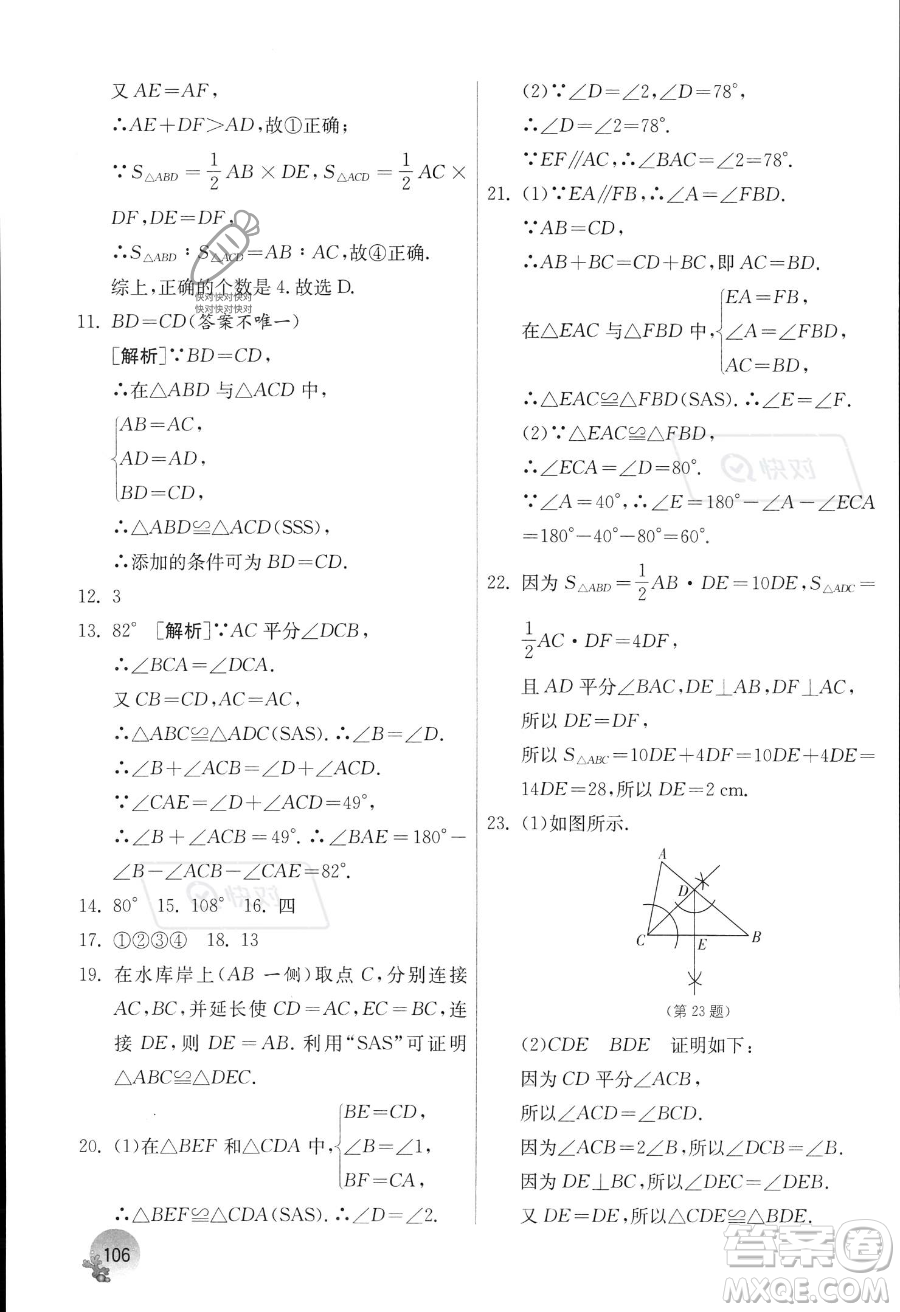 又 AE=AF,
∴AE+DF>AD,故①正确;
∵S△ABD=1/2 AB×DE,S△ACD=1/2 AC×
DF,DE=DF,
∴S△ABD∶S△ACD=AB∶AC,故④正确.
综上,正确的个数是 4.故选 D.
快对快对快对
快对快对快对
11. BD=CD(答案不唯一)
[解析]∵BD=CD,
∴在△ABD 与△ACD 中,
{AB=AC,
AD=AD,
BD=CD,
∴△ABD≌△ACD(SSS).
∴添加的条件可为 BD=CD.
12. 3
13. 82° [解析]∵AC 平分∠DCB,
∴∠BCA=∠DCA.
又 CB=CD,AC=AC,
∴△ABC≌△ADC(SAS).∴∠B=∠D.
∴∠B+∠ACB=∠D+∠ACD.
∵∠CAE=∠D+∠ACD=49°,
∴∠B+∠ACB=49°.∴∠BAE=180°−
∠B−∠ACB−∠CAE=82°.
快对
14. 80° 15. 108° 16. 四
17. ①②③④ 18. 13
19. 在水库岸上(AB 一侧)取点 C,分别连接
AC,BC,并延长使 CD=AC,EC=BC,连
接 DE,则 DE=AB.利用“SAS”可证明
△ABC≌△DEC.
20. (1)在△BEF 和△CDA 中,{BE=CD,
∠B=∠1,
BF=CA,
∴△BEF≌△CDA(SAS).∴∠D=∠2.
106
(2)∵∠D=∠2,∠D=78°,
∴∠D=∠2=78°.
∵EF∥AC,∴∠BAC=∠2=78°.
21. (1)∵EA∥FB,∴∠A=∠FBD.
∵AB=CD,
∴AB+BC=CD+BC,即 AC=BD.
在△EAC 与△FBD 中,{EA=FB,
∠A=∠FBD,
AC=BD,
∴△EAC≌△FBD(SAS).∴∠E=∠F.
(2)∵△EAC≌△FBD,
∴∠ECA=∠D=80°.
快对
∵∠A=40°,∴∠E=180°−∠A−∠ECA
=180°−40°−80°=60°.
22. 因为 S△ABD=1/2 AB·DE=10DE,S△ADC=
1/2 AC·DF=4DF,
且 AD 平分∠BAC,DE⊥AB,DF⊥AC,
所以 DE=DF,
所以 S△ABC=10DE+4DF=10DE+4DE=
14DE=28,所以 DE=2 cm.
23. (1)如图所示.
A
D
C E B
(第 23 题)
(2)CDE BDE 证明如下:
因为 CD 平分∠ACB,
所以∠ACD=∠DCB.
因为∠ACB=2∠B,所以∠DCB=∠B.
因为 DE⊥BC,所以∠DEC=∠DEB.
又 DE=DE,所以△CDE≌△BDE.
答案圈
MXQE.COM